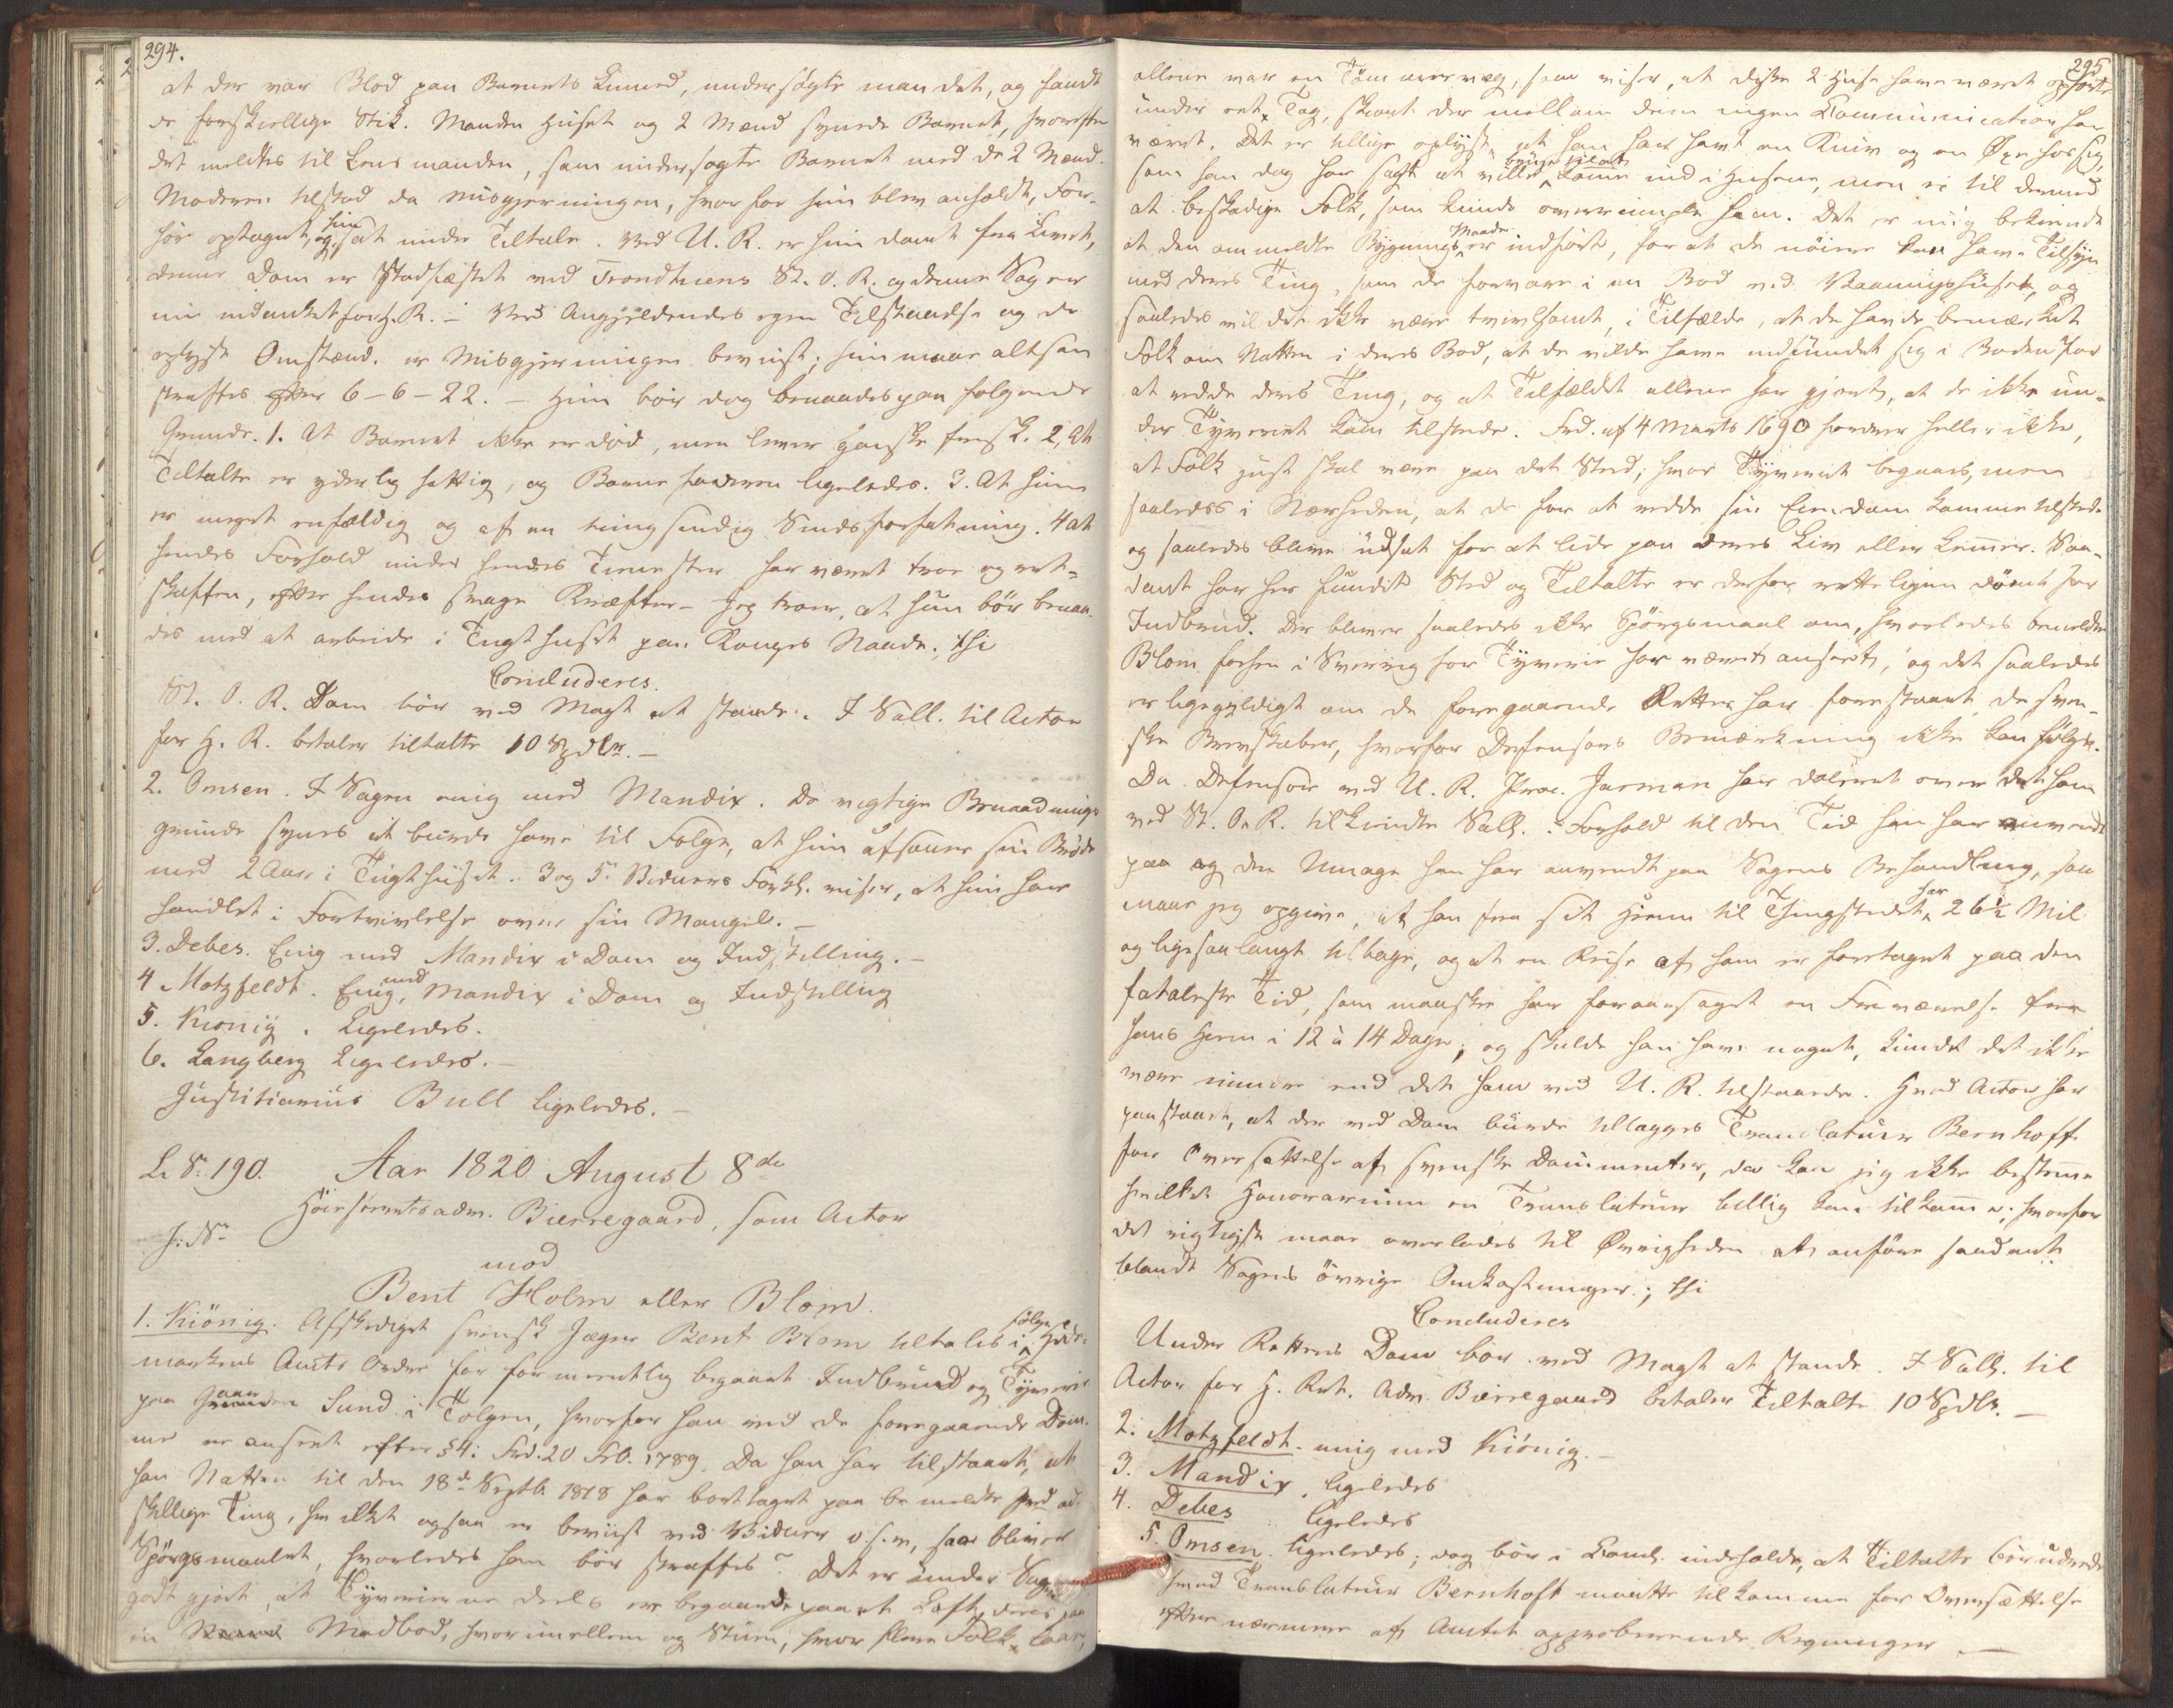 294.
at der var Blod paa Barnets Linned, undersøgte man det, og fandt
de forskiellige Stik. Manden Huset og 2 Mænd synede Barnet, hvorefter
det meldtes til Lensmanden, som undersøgte Barnet med de 2 Mænd.
Moderen tilstod da Misgjerningen, hvorfor hun blev anholdt, For-
hör optaget, og hun sat under Tiltale. Ved U. R. er hun dömt fra Livet,
denne Dom er Stadfæstet ved Trondhiems St. O. R. og denne Sag er
nu indanket for H. R. – Ved Angjeldendes egen Tilstaaelse og de
oplyste Omstænd. er Misgjerningen beviist; hun maae altsaa
straffes efter 6-6-22. – Hun bör dog benaades paa følgende
Grunde. 1. At Barnet ikke er död, men lever ganske frisk. 2, At
Tiltalte er yderlig fattig, og Barnefaderen ligeledes. 3. At hun
er meget enfældig og af en tungsindig Sindsforfatning. 4 at
hendes Forhold under hendes Tienester har været troe og ret-
skaffen, efter hendes svage Kræfter – Jeg troer, at hun bör benaa-
des med at arbeide i Tugthuset paa Konges Naade; thi
Concluderes.
St. O. R. Dom bör ved Magt at stande. I Sall. til Actor
for H. R. betaler tiltalte 10 Spdlr. –
2. Omsen. I Sagen enig med Mandix. De vigtige Benaadnings
grunde synes at burde have til Følge, at hun afsoner sin Brøde
med 2 Aar i Tugthuset. 3 og 5 Vidners Forkl. viser, at hun har
handlet i Fortvivlelse over sin Mangel. –
3. Debes. Enig med Mandix i Dom og Indstilling. –
4 Motzfeldt. Enig med Mandix i Dom og Indstilling
5. Kiönig. Ligeledes.
6. Langberg Ligeledes. –
Justitiarius Bull ligeledes. –
L. No. 190. Aar 1820 August 8de
Höiesteretsadv. Bierregaard, som Actor
J: No
mod
Bent Holm eller Blom.
1. Kiönig. Afskediget svensk Jæger Bent Blom tiltales i følge Hede-
markens Amts Order for formeentlig begaaet Indbrud og Tyverie
paa Gaarden Sund i Tolgen, hvorfor han ved de foregaaende Dom-
me er anseet efter § 4: Frd. 20 Feb. 1789. Da han har tilstaaet, at
han Natten til den 18de Septb. 1818 har borttaget paa bemeldte Sted ad-
skillige Ting, hvilket ogsaa er beviist ved Vidner o.s.v, saa bliver
Spörgsmaalet, hvorledes han bör straffes? Det er under Sagen
godtgjort, at Tyverierne deels er begaaede paa et Loft, deels paa
en Madbod, hvorimellem og Stuen, hvor flere Folk laae,
295
allene var en Tömmervæg, som viser, at disse 2 Huse have været opförte
under eet Tag, skiönt der mellem dem ingen Communication har
været. Det er tillige oplyst, at han har havt en Kniv og en Øxe hos sig,
som han dog har sagt at ville bruge til at komme ind i Husene, men ei til dermed
at beskadige Folk, som kunde overrumple ham. Det er mig bekiendt
at den ommeldte Bygnings Maade er indfört, for at de nöiere kan have Tilsyn
med deres Ting, som de forvare i en Bod ved Vaaningshuset, og
saaledes vil det ikke være tvivlsomt, i Tilfælde, at de havde bemærket
Folk om Natten i deres Bod, at de vilde have indfundet sig i Boden for
at redde deres Ting, og at Tilfældet allene har gjort, at de ikke un-
der Tyveriet kom tilstede. Frd. af 4 Marts 1690 fordrer heller ikke,
at Folk just skal være paa det Sted, hvor Tyveriet begaaes, men
saaledes i Nærheden, at de for at redde sin Eiendom komme tilstede
og saaledes blive udsat for at lide paa deres Liv eller Lemmer. Saa-
dant har her fundet Sted og Tiltalte er derfor retteligen dömt for
Indbrud. Der bliver saaledes ikke Spörgsmaal om, hvorledes bemeldte
Blom forhen i Sverrig for Tyverie har været anseet, og det saaledes
er ligegyldigt om de foregaaende Retter har forestaaet de sven-
ske Brevskaber, hvorfor Defensors Bemærkning ikke kan fölges.
Da Defensor ved U. R. Proc. Jurman har doleret over det ham
ved St. O. R. tilkiendte Sall. i Forhold til den Tid han har anvendt
paa og den Umage han har anvendt paa Sagens Behandling, saa
maae jeg opgive, at han fra sit Hiem til Thingstedet har 26½ Mil
og ligesaa langt tilbage, og at en Reise af ham er foretaget paa den
fataleste Tid, som maaskee har foraarsaget en Fraværelse fra
hans Hiem i 12 à 14 Dage; og skulde han have noget, kunde det ikke
være mindre end det ham ved U. R. tilstaaede. Hvad Actor har
paastaaet, at der ved Dom burde tillægges Translateur Bernhoft
for Oversættelse af svenske Documenter, da kan jeg ikke bestemme
hvilket Honorarium en Translateur billig kan tilkomme; hvorfor
det rigtigste maae overlades til Øvrigheden at anföre saadant
blandt Sagens övrige Omkostninger; thi
Concluderes
Under Rettens Dom bör ved Magt at stande. I Sall. til
Actor for H. Ret. Adv. Bierregaard betaler Tiltalte 10 Spdlr. –
2. Motzfeldt. enig med Kiönig. –
3. Mandix, ligeledes
4. Debes ligeledes
5. Omsen. ligeledes; dog bör i Concl. indeholdes, at Tiltalte bör udrede
hvad Translateur Bernhoft maatte tilkomme for Oversættelse
efter nærmere af Amtet approberende Regninger. –